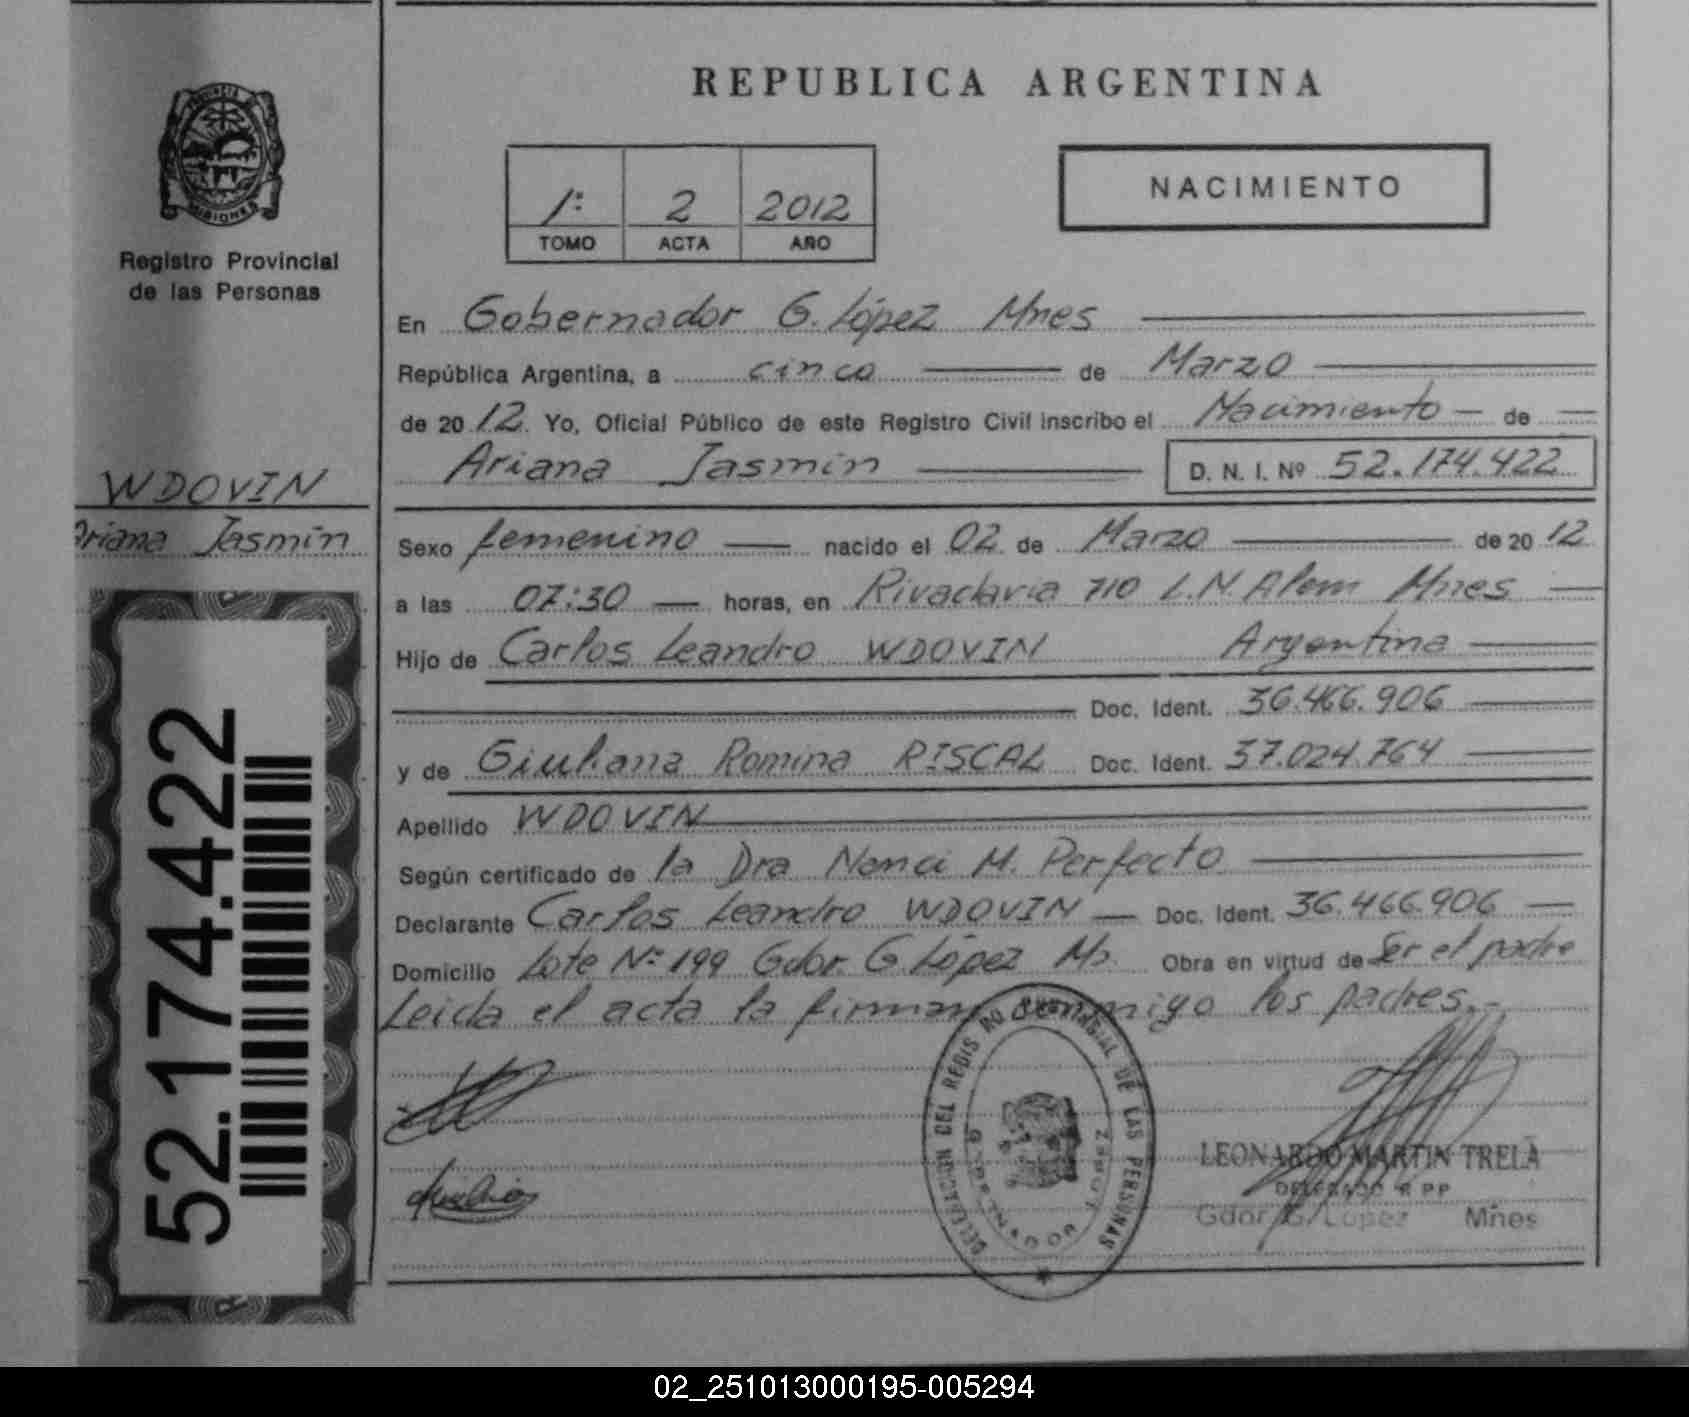 REPUBLICA ARGENTINA
PROVINCIA DE
MISIONES
Registro Provincial
de las Personas
1º 2 2012
TOMO ACTA AÑO
NACIMIENTO
En Gobernador G. López Mnes
República Argentina, a cinco de Marzo
de 2012. Yo, Oficial Público de este Registro Civil inscribo el Nacimiento de
Ariana Jasmin D. N. I. Nº 52.174.422
WDOVIN
Ariana Jasmin
Sexo femenino nacido el 02 de Marzo de 2012
a las 07:30 horas, en Rivadavia 710 L.N. Alem Mnes
Hijo de Carlos Leandro WDOVIN Argentina
Doc. Ident. 36.466.906
y de Giuliana Romina RISCAL Doc. Ident. 37.024.764
Apellido WDOVIN
Según certificado de la Dra Nanci M. Perfecto
Declarante Carlos Leandro WDOVIN Doc. Ident. 36.466.906
Domicilio Lote Nº 199 Gdor. G. López Ms. Obra en virtud de Ser el padre
Leida el acta la firman conmigo los padres.-
52.174.422
LEONARDO MARTIN TRELA
DELEGADO R.P.P.
Gdor. G. López Mnes
02_251013000195-005294